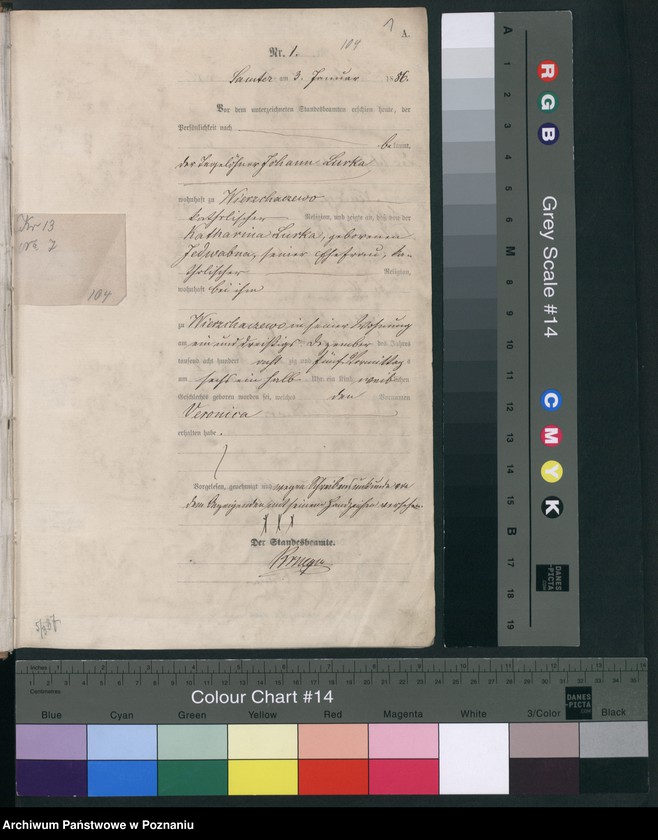 1
104
A.
Nr. 1.
Samter am 3. Januar 1886.
Vor dem unterzeichneten Standesbeamten erschien heute, der
Persönlichkeit nach
be kannt,
der Tagelöhner Johann Lurka
wohnhaft zu Wierzchaczewo
katholischer Religion, und zeigte an, daß von der
Katharina Lurka, geborenen
Jedwabna, seiner Ehefrau, ka-
tholischer Religion,
wohnhaft bei ihm
zu Wierzchaczewo in seiner Wohnung
am ein und dreißigsten Dezember des Jahres
tausend acht hundert achtzig und fünf Vormittags
um sechs ein halb Uhr ein Kind weiblichen
Geschlechts geboren worden sei, welches den Vornamen
Veronica
erhalten habe.
Vorgelesen, genehmigt und wegen Schreibensunkunde von
dem Anzeigenden mit seinem Handzeichen versehen.
XXX
Der Standesbeamte.
104
Grey Scale #14
A 1 2 3 4 5 6 M 8 9 10 11 12 13 14 15 B 17 18 19
R
G
B
C
M
Y
K
DANES
-PICTA
.COM
Inches
Centimetres
Colour Chart #14
DANES
-PICTA
.COM
Blue Cyan Green Yellow Red Magenta White 3/Color Black
Archiwum Państwowe w Poznaniu